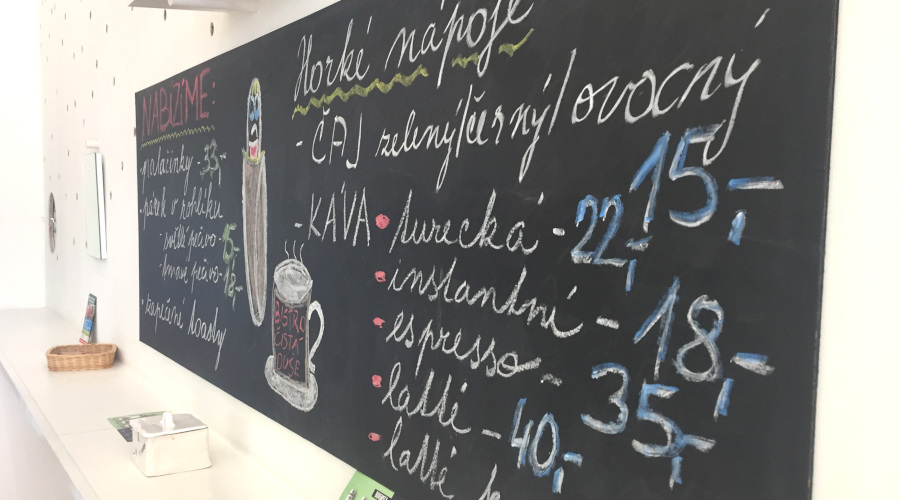 NABÍZÍME:
• palačinky - 33,-
• párek v rohlíku
- světlé pečivo -
- tmavé pečivo - 18,-
• zapečené toasty
BISTRO
ČISTÁ
DUŠE
Horké nápoje
- ČAJ zelený/černý/ovocný
15,-
- KÁVA • turecká - 22,-
• instantní - 18,-
• espresso - 35,-
• latté - 40,-
• latté